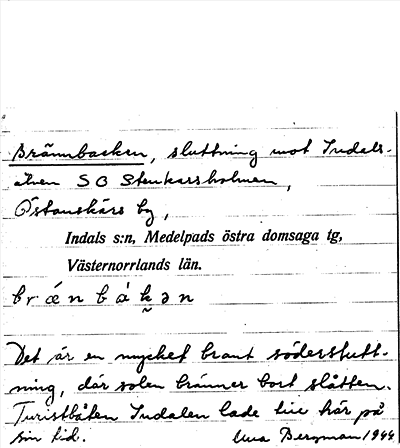 Brännbacken, sluttning mot Indals-
älven SO Stenkarsholmen,
Östanskärs by,
Indals s:n, Medelpads östra domsaga tg,
Västernorrlands län.
brǽnbák̬ən
Det är en mycket brant söderslutt-
ning, där solen bränner bort slåtten.
Turistbåten Indalen lade till här på
sin tid. Una Bergman 1944